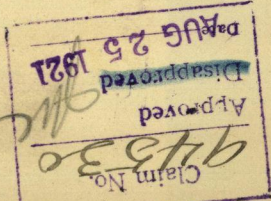 Claim No.
94530
Approved
Disapproved
Date AUG 25 1921